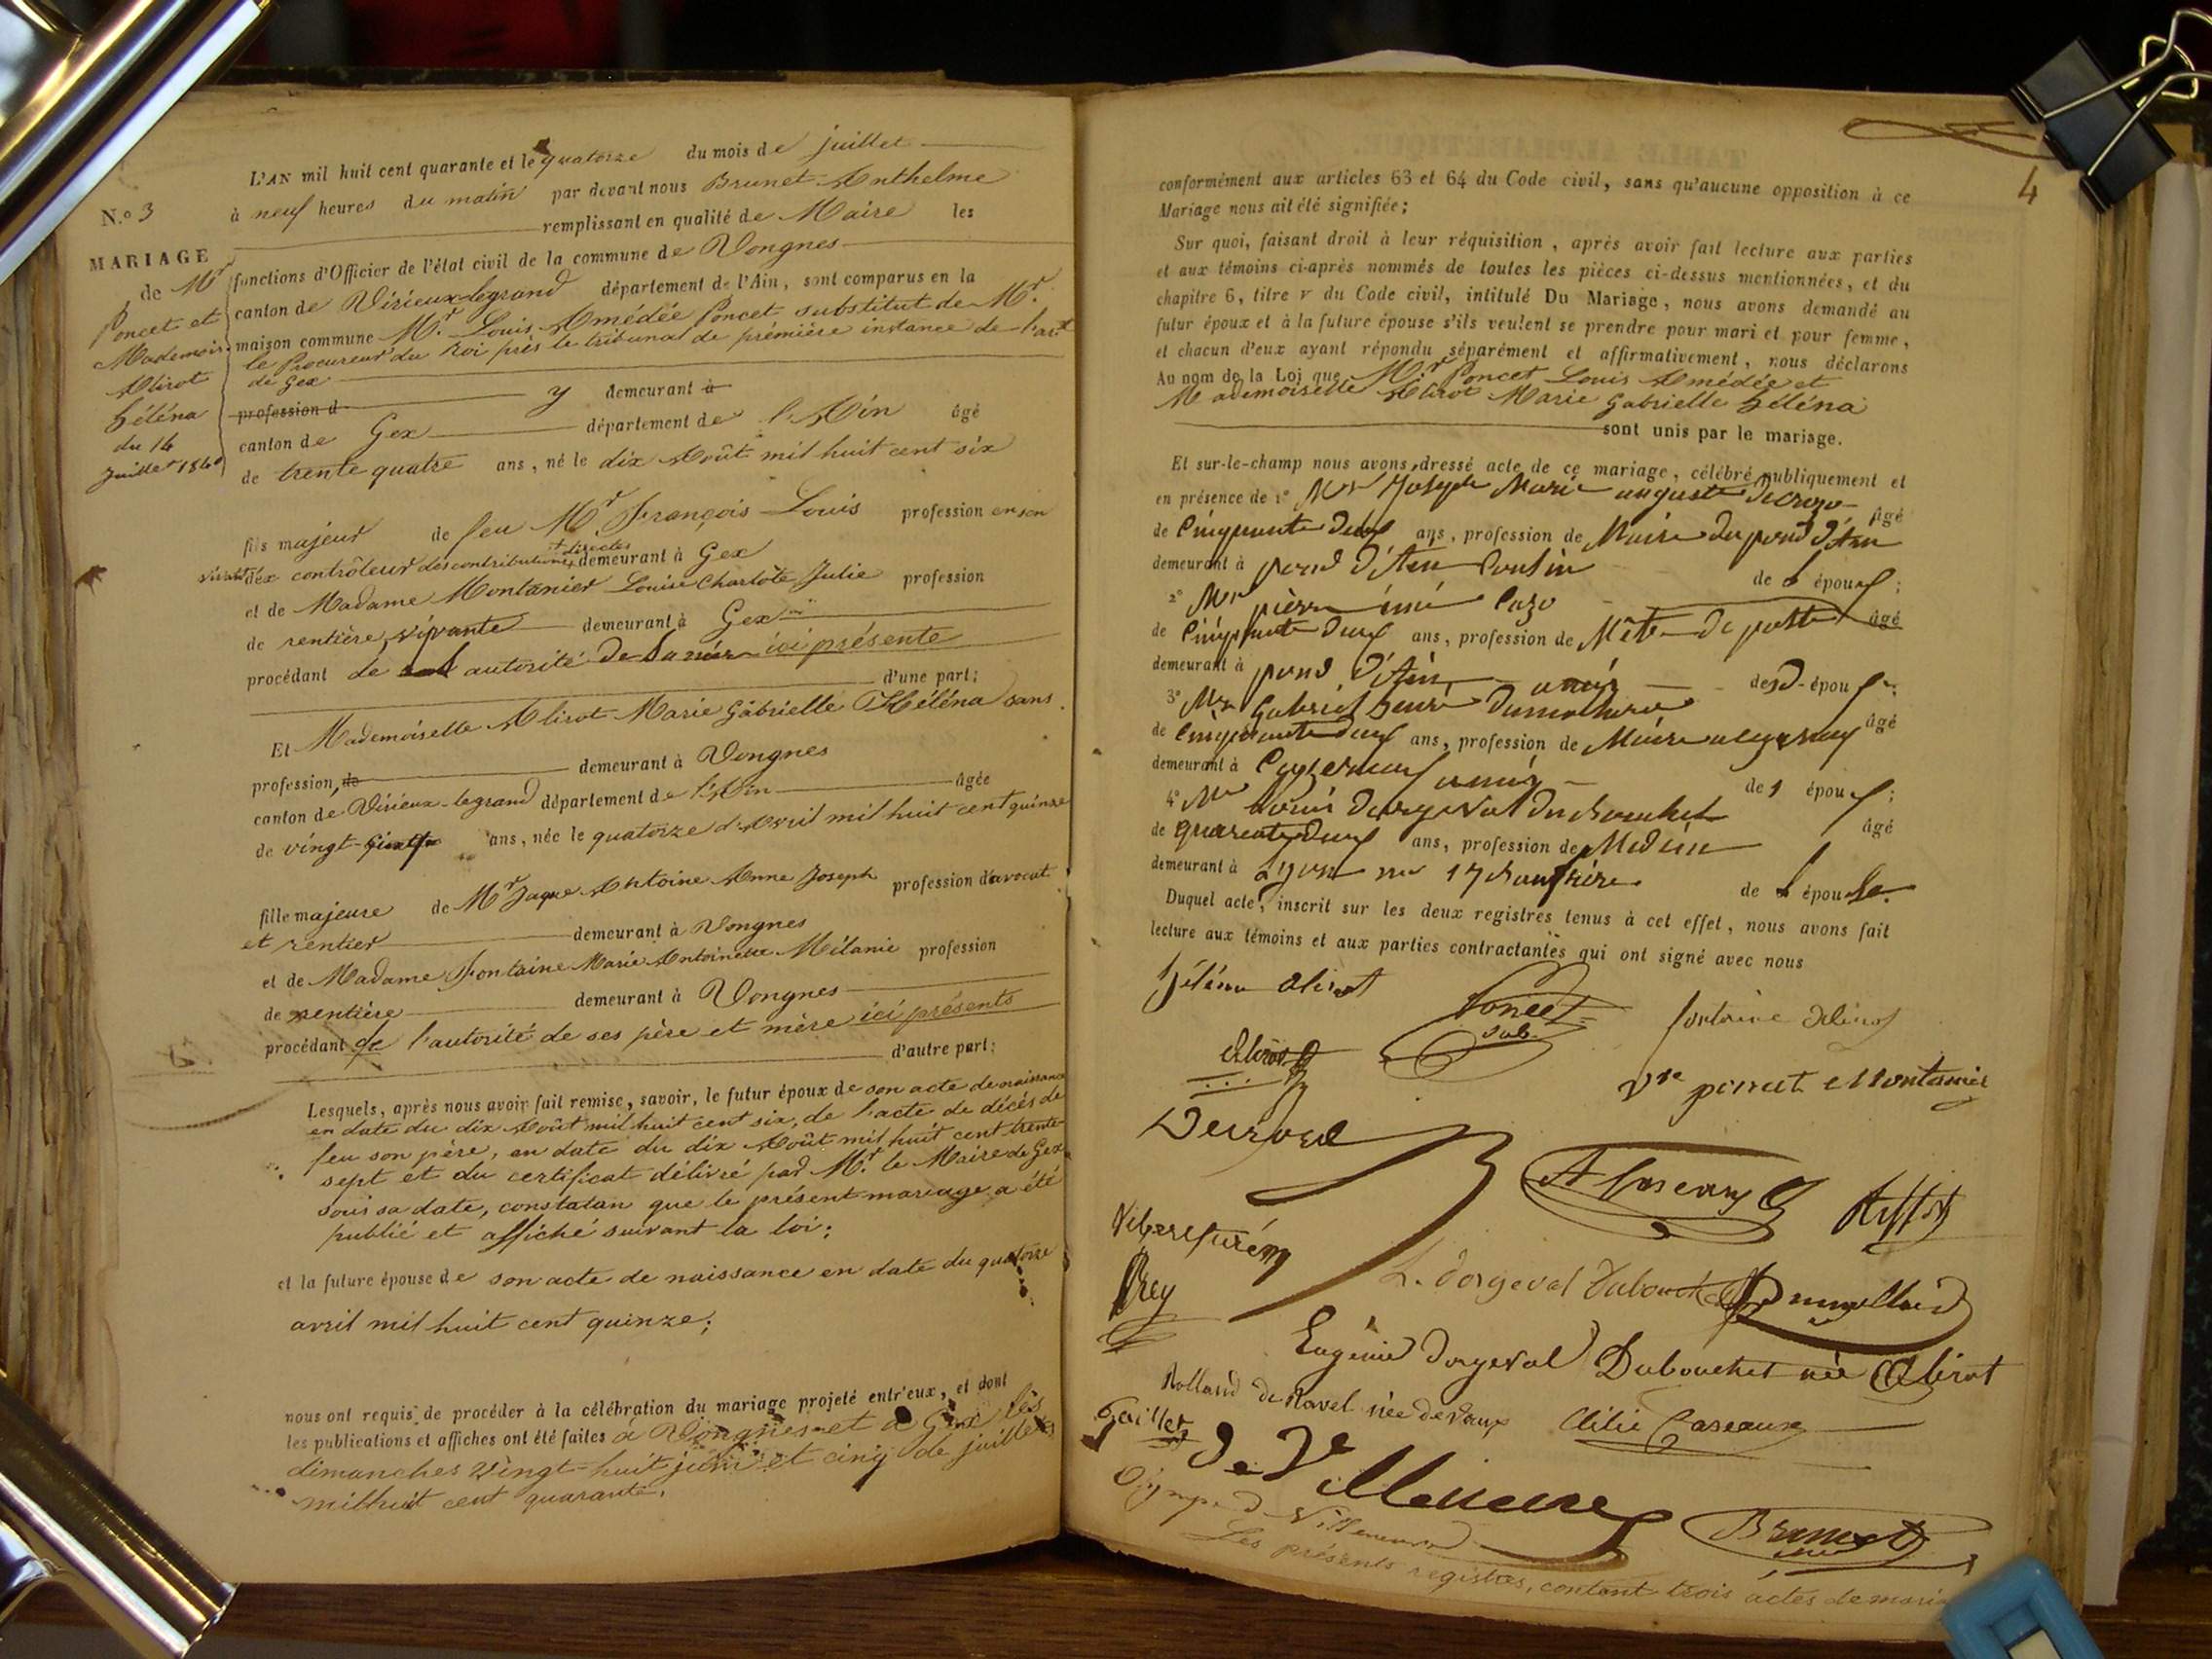 N.o 3
MARIAGE
de Mr
Poncet et
Mademois.
Alirot
héléna
du 14
Juillet 1840
L'AN mil huit cent quarante et le quatorze du mois de juillet
à neuf heures du matin par devant nous Brunet Anthelme
remplissant en qualité de Maire les
fonctions d'Officier de l'état civil de la commune de Vongnes
canton de Virieux-legrand département de l'Ain, sont comparus en la
maison commune Mr. Louis Amédée Poncet substitut de Mr.
le Procureur du Roi près le tribunal de première instance de l'art
de Gex
profession d y demeurant à
canton de Gex département de l'Ain âgé
de trente quatre ans, né le dix Août mil huit cent six
fils majeur de feu Mr. François Louis profession en son
vivant d'ex contrôleur des contributions directes demeurant à Gex
et de Madame Montanier Louise Charlote Julie profession
de rentière vivante demeurant à Gex
procédant de autorité de sa mère ici présente
d'une part;
Et Mademoiselle Alirot Marie Gabrielle Héléna sans
profession, de demeurant à Vongnes
canton de Virieux-legrand département de l'Ain âgée
de vingt-cinq ans, née le quatorze d'Avril mil huit cent quinze
fille majeure de Mr Jaque Antoine Anne Joseph profession d'avocat
et rentier demeurant à Vongnes
et de Madame Fontaine Marie Antoinette Mélanie profession
de rentière demeurant à Vongnes
procédant de l'autorité de ses père et mère ici présents
d'autre part;
Lesquels, après nous avoir fait remise, savoir, le futur époux de son acte de naissance
en date du dix Août mil huit cent six, de l'acte de décès de
feu son père, en date du dix Août mil huit cent trente-
sept et du certificat délivré par Mr. le Maire de Gex
sous sa date, constatan que le présent mariage a été
publié et affiché suivant la loi;
et la future épouse de son acte de naissance en date du quatorze
avril mil huit cent quinze;
nous ont requis de procéder à la célébration du mariage projeté entr'eux, et dont
les publications et affiches ont été faites à Vongnes et à Gex les
dimanches vingt-huit juin et cinq de juillet
mil huit cent quarante.
4
conformément aux articles 63 et 64 du Code civil, sans qu'aucune opposition à ce
Mariage nous ait été signifiée;
Sur quoi, faisant droit à leur réquisition, après avoir fait lecture aux parties
et aux témoins ci-après nommés de toutes les pièces ci-dessus mentionnées, et du
chapitre 6, titre v du Code civil, intitulé Du Mariage, nous avons demandé au
futur époux et à la future épouse s'ils veulent se prendre pour mari et pour femme,
et chacun d'eux ayant répondu séparément et affirmativement, nous déclarons
Au nom de la Loi que Mr. Poncet Louis Amédée et
Mademoiselle Alirot Marie Gabrielle héléna
sont unis par le mariage.
Et sur-le-champ nous avons dressé acte de ce mariage, célébré publiquement et
en présence de 1° Mr Joseph Marie auguste Decroso âgé
de Cinquante deux ans, profession de Maire du pond d'Ain
demeurant à pond d'Ain Cousin de l époux;
2° Mr pierre émé Cozo âgé
de Cinquante deux ans, profession de Mètre de poste
demeurant à pond d'Ain amis de d épou
3° Mr Gabriel henri âgé
de Cinquante deux ans, profession de Maire
demeurant à amis de l épou ;
4° Mr Louis Dorgeval Dubouchet âgé
de quarente deux ans, profession de Médecin
demeurant à Lyon rue de l épouse.
Duquel acte, inscrit sur les deux registres tenus à cet effet, nous avons fait
lecture aux témoins et aux parties contractantes qui ont signé avec nous
héléna alirot
Poncet
sub.
fontaine Alirot
Alirot
Vve poncet Montanier
Decroso
Rey
L. dorgeval Dubouchet
Eugénie Dorgeval Dubouchet née Alirot
Rolland de Ravel née devaux
Clélie Caseaux
Gaillet
De Villeneuve
Olympe d Villeneuve
Brunet
Les présents registres, contant trois actes de maria